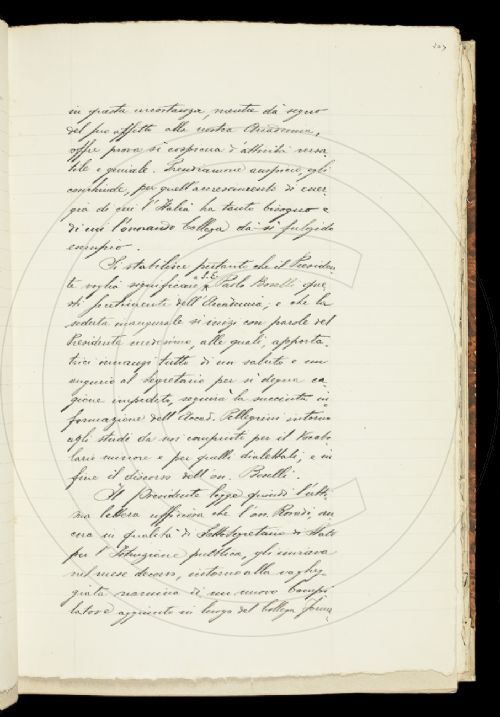 in questa circostanza, mentre dà segno
del suo affetto alla nostra Accademia,
offre prova sì cospicua d'attività versa-
tile e geniale. Prendiamone auspicio, egli
conchiude, per quell'accrescimento di ener-
gia di cui l'Italia ha tanto bisogno e
di cui l'onorando Collega dà sì fulgido
esempio.
Si stabilisce pertanto che il Presiden-
te voglia significare a S. E. Paolo Boselli que-
sti dell'Accademia; e che la
seduta inaugurale si inizi con parole del
Presidente medesimo, alle quali, apporta-
trici innanzi tutto di un saluto e un
augurio al Segretario per sì degna ca-
gione impedito, seguirà la succinta in-
formazione dell'Accad. Pellegrini intorno
agli studi da noi compiuti per il Vocabo-
lario minore e per quelli dialettali, e in-
fine il discorso dell'on. Boselli.
Il Presidente legge quindi l'ulti-
ma lettera ufficiosa che l'on. Rosadi, an-
cora in qualità di Sottosegretario di Stato
per l'Istruzione pubblica, gli inviava
nel mese decorso, intorno alla vagheg-
giata nomina di un nuovo Compi-
latore aggiunto in luogo del Collega